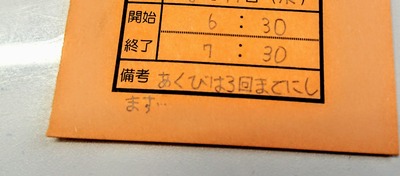 開始 6:30
終了 7:30
備考 あくびは3回までにし
ます…